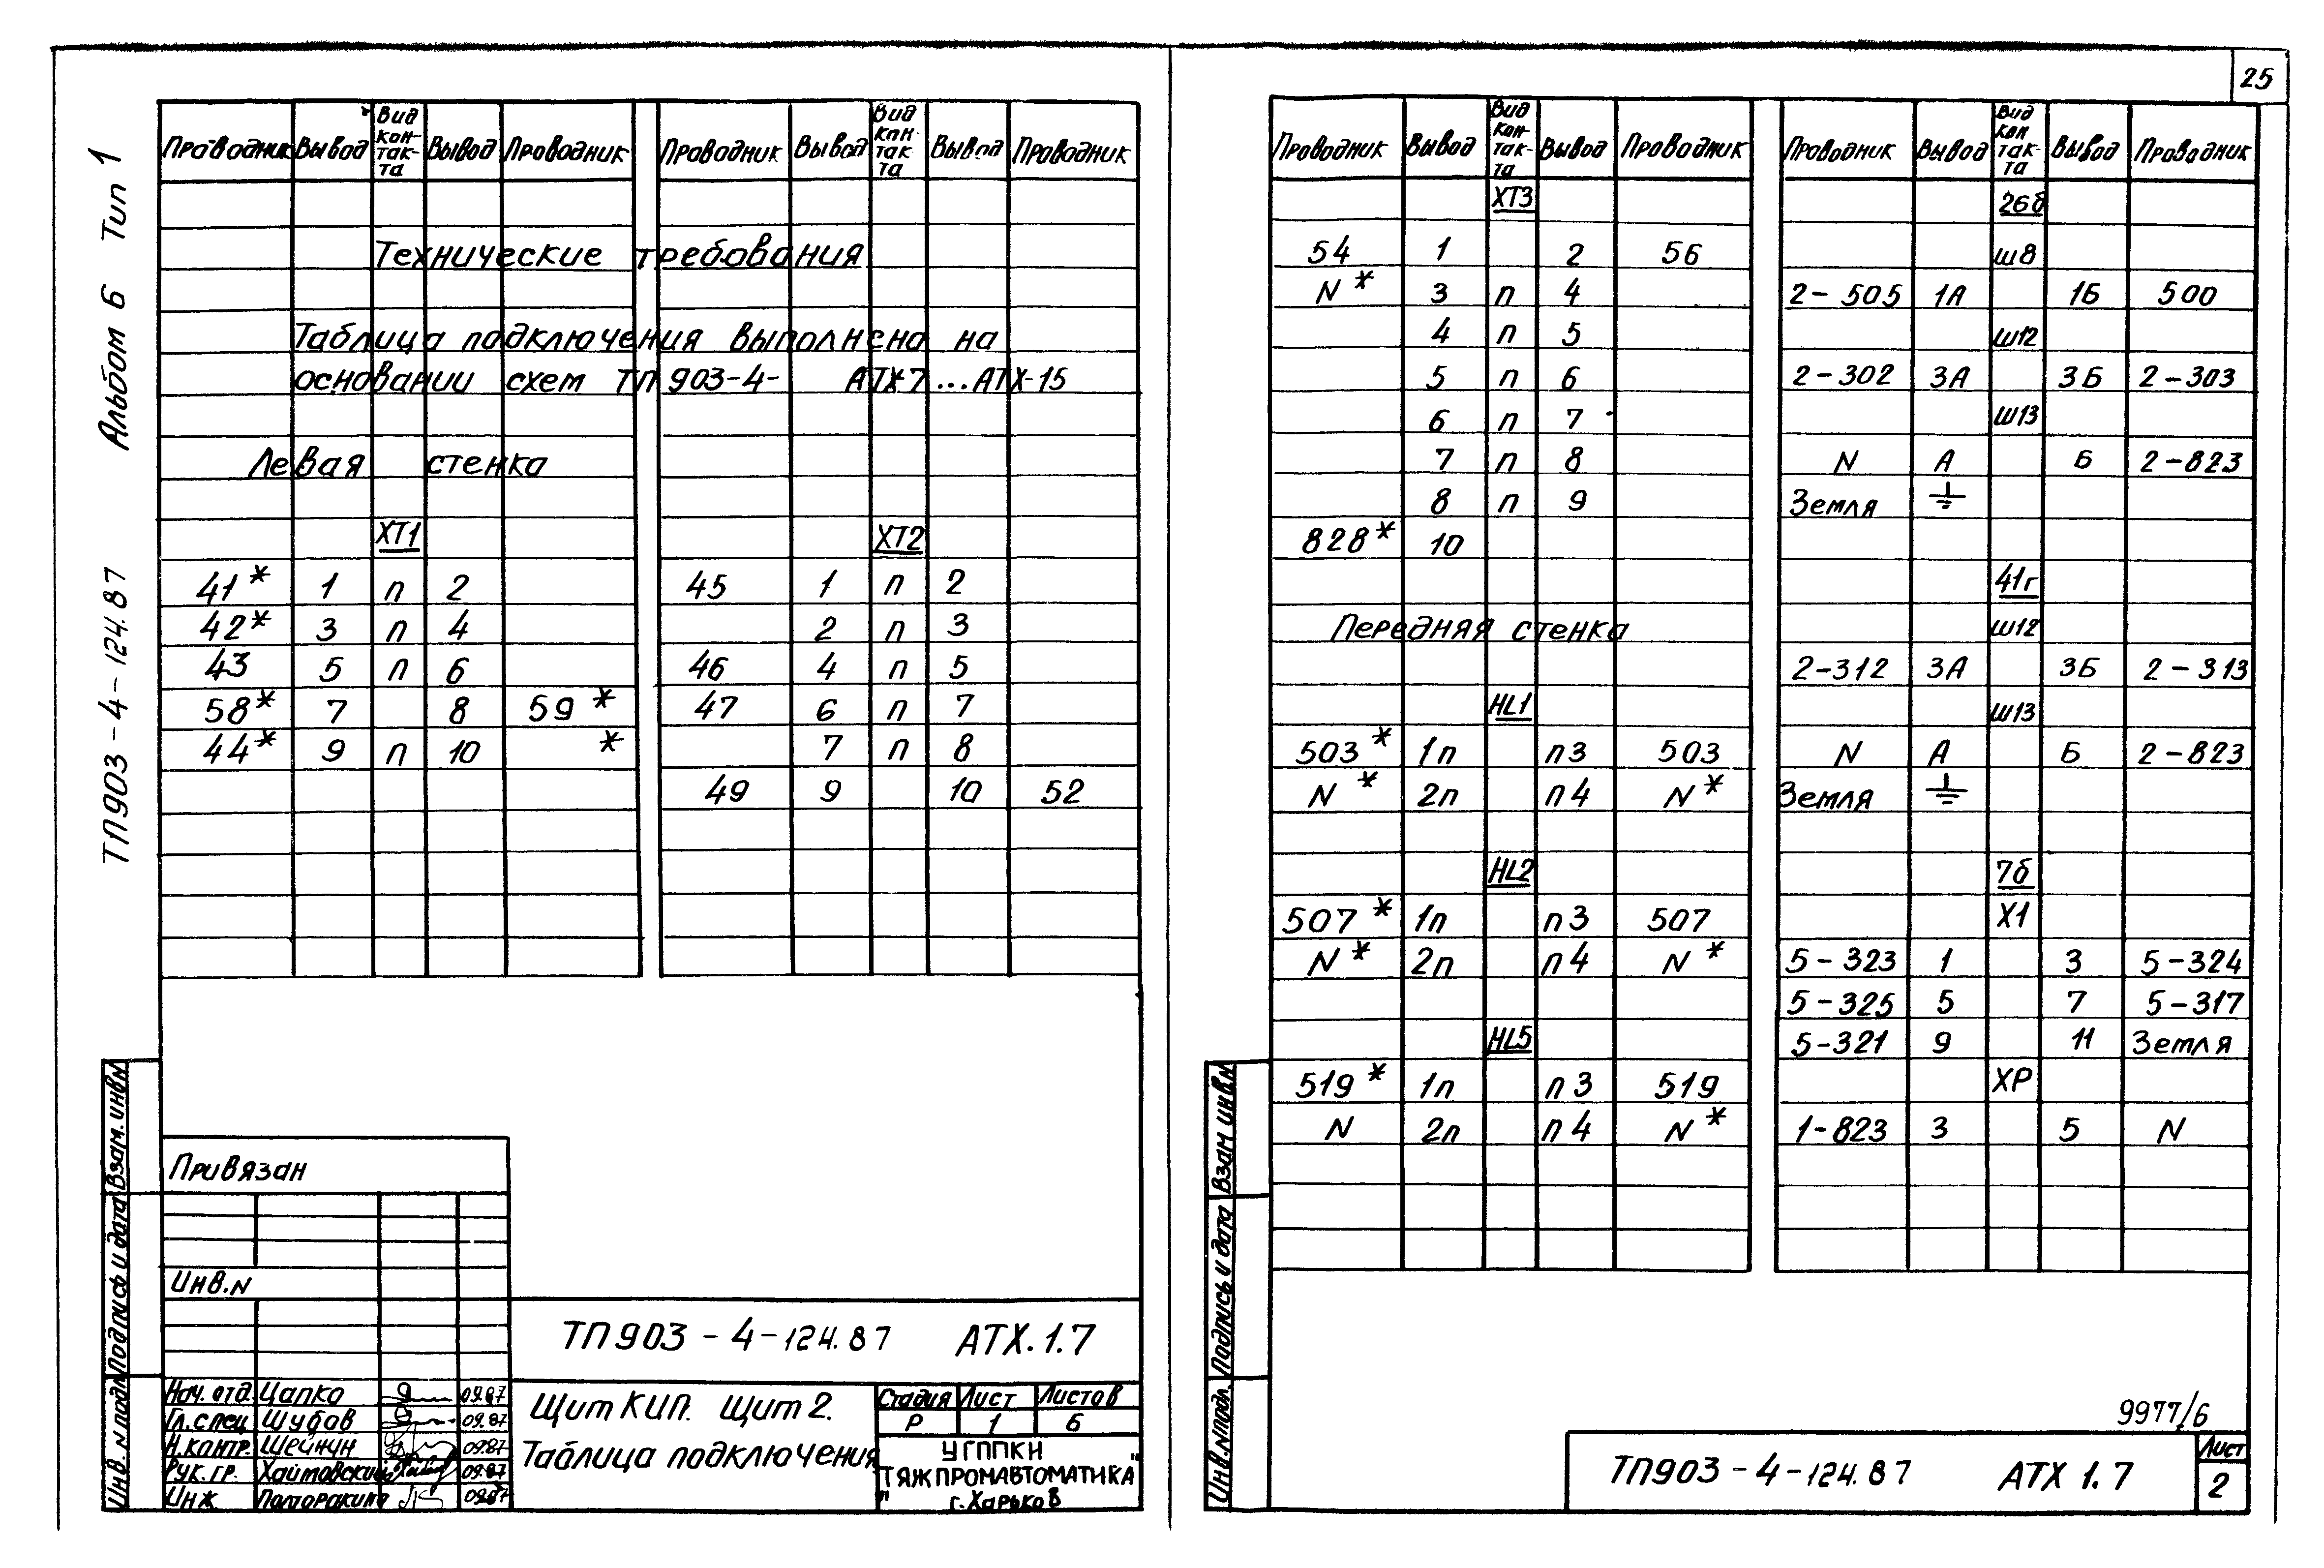 25
Альбом 6 Тип 1
ТП903-4-124.87
Проводник Вывод Вид кон-так-та Вывод Проводник Проводник Вывод Вид кон-так-та Вывод Проводник
Технические требования
Таблица подключения выполнена на
основании схем ТП 903-4- АТХ-7...АТХ-15
Левая стенка
ХТ1 ХТ2
41* 1 п 2 45 1 п 2
42* 3 п 4 2 п 3
43 5 п 6 46 4 п 5
58* 7 8 59* 47 6 п 7
44* 9 п 10 * 7 п 8
49 9 10 52
Привязан
Инв.N
ТП903-4-124.87 АТХ.1.7
Нач.отд. Цапко 09.87
Гл.спец Шубав 09.87
Н.контр. Шейнун 09.87
Рук.гр. Хайтовский 09.87
Инж 09.87
Щит КИП. Щит 2.
Таблица подключения
Стадия Лист Листов
Р 1 6
УГППКИ
"ТЯЖПРОМАВТОМАТИКА"
г.Харьков
Взам.инвN
Подпись и дата
Инв.Nподл
Проводник Вывод Вид кон-так-та Вывод Проводник
ХТ3
54 1 2 56
N* 3 п 4
4 п 5
5 п 6
6 п 7
7 п 8
8 п 9
828* 10
Передняя стенка
HL1
503* 1п п3 503
N* 2п п4 N*
HL2
507* 1п п3 507
N* 2п п4 N*
HL5
519* 1п п3 519
N 2п п4 N*
Проводник Вывод Вид кон так-та Вывод Проводник
26б
ш8
2-505 1А 1Б 500
ш12
2-302 3А 3Б 2-303
ш13
N А Б 2-823
Земля ⏚
41г
ш12
2-312 3А 3Б 2-313
ш13
N А Б 2-823
Земля ⏚
7б
Х1
5-323 1 3 5-324
5-325 5 7 5-317
5-321 9 11 Земля
ХР
1-823 3 5 N
Взам инвN
Подпись и дата
Инв.Nподл.
9977/6
ТП903-4-124.87 АТХ 1.7
Лист
2